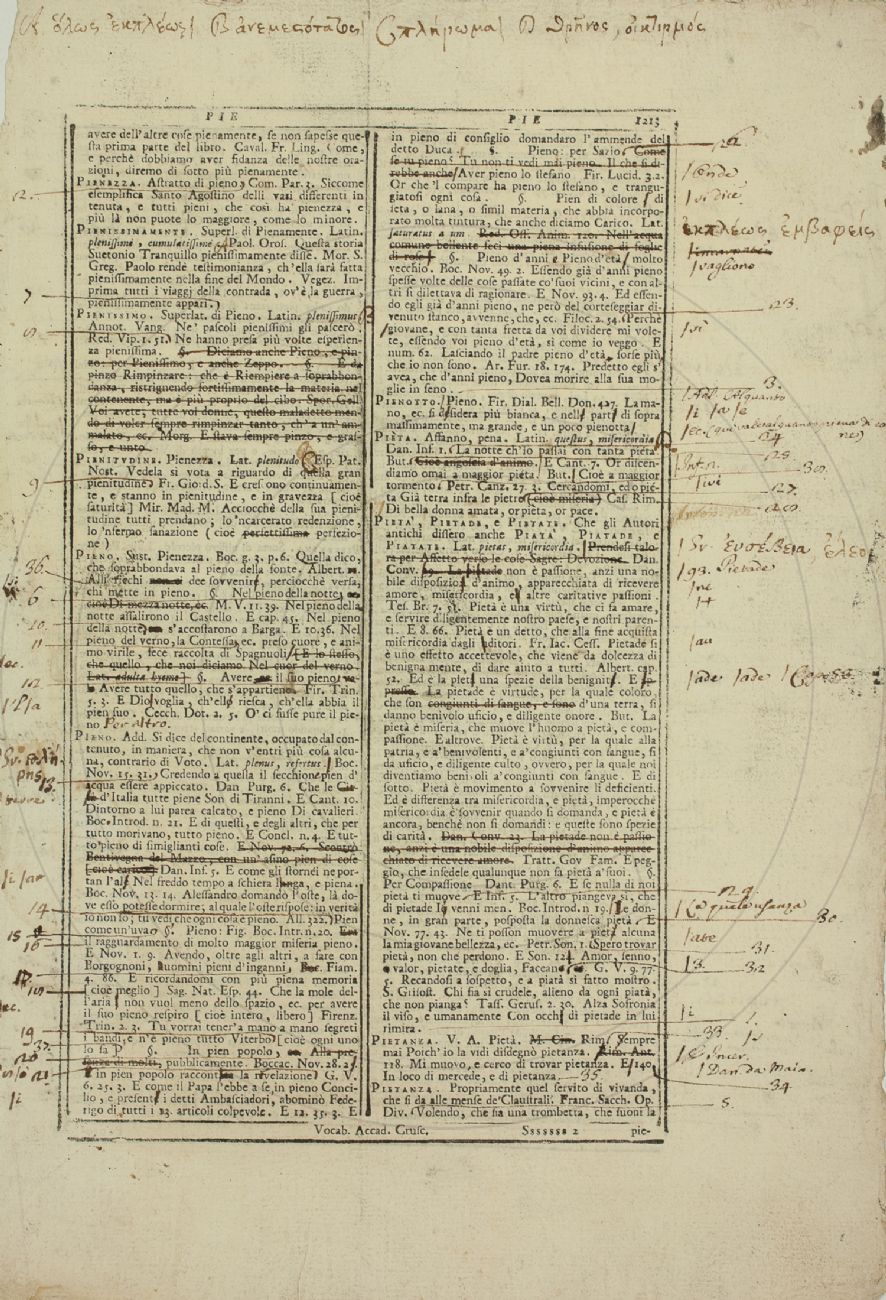 A ὅλως ἐκπλέως B ἀνεμεσότατος C πλήρωμα D θρῆνος, οἰκτιρμός
PIE
avere dell'altre cose pienamente, se non sapesse que-
sta prima parte del libro. Caval. Fr. Ling. Come,
e perchè dobbiamo aver fidanza delle nostre ora-
zioni, diremo di sotto più pienamente.
PIENEZZA. Astratto di pieno, Com. Par. 3. Siccome
esemplifica Santo Agostino delli vasi differenti in
tenuta, e tutti pieni, che così ha pienezza, e
più là non puote lo maggiore, come lo minore.
PIENISSIMAMENTE. Superl. di Pienamente. Latin.
plenissimè, cumulatissimè. Paol. Oros. Questa storia
Suetonio Tranquillo pienissimamente disse. Mor. S.
Greg. Paolo rende testimonianza, ch'ella sarà fatta
pienissimamente nella fine del Mondo. Vegez. Im-
prima tutti i viaggi della contrada, ov'è la guerra,
pienissimamente appari.
PIENISSIMO. Superlat. di Pieno. Latin. plenissimus
Annot. Vang. Ne' pascoli pienissimi gli pascerò.
Red. Vip. 1. 51. Ne hanno presa più volte esperien-
za pienissima. §. Diciamo anche Pieno, e pin-
zo: per Pienissimo, e anche Zeppo. §. E da
pinzo Rimpinzare: che è Riempiere a soprabbon-
danza, ristrignendo fortissimamente la materia nel
contenente, ma è più proprio del cibo. Spor. Gell.
Voi avete, tutte voi donne, questo maladetto men-
do di voler sempre rimpinzar tanto, ch'a un'am-
malato, ec. Morg. E stava sempre pinzo, e gras-
so, e unto.
PIENITUDINE. Pienezza. Lat. plenitudo. Esp. Pat.
Nost. Vedela si vota a riguardo di quella gran
pienitudine. Fr. Gio: d. S. E crescono continuamen-
te, e stanno in pienitudine, e in gravezza [cioè
saturità] Mir. Mad. M. Acciocchè della sua pieni-
tudine tutti prendano; lo 'ncarcerato redenzione,
lo 'nfermo sanazione (cioè perfettissima perfezio-
ne)
PIENO. Sust. Pienezza. Boc. g. 3. p. 6. Quella dico,
che soprabbondava al pieno della fonte. Albert.
Alli ricchi non si dee sovvenire, perciocchè versa,
chi mette in pieno. §. Nel pieno della notte,
cioè Di mezza notte, ec. M. V. 11. 39. Nel pieno della
notte assalirono il Castello. E cap. 45. Nel pieno
della notte, s'accostarono a Barga. E 10. 36. Nel
pieno del verno, la Contessa, ec. preso cuore, e ani-
mo virile, fece raccolta di Spagnuoli. [E lo stesso,
che quello, che noi diciamo Nel cuor del verno.
Lat. adulta hyeme] §. Avere il suo pieno: va-
le Avere tutto quello, che s'appartiene. Fir. Trin.
5. 3. E Dio voglia, ch'ella riesca, ch'ella abbia il
pien suo. Cecch. Dot. 2. 5. O' ci fusse pure il pie-
no Per altro.
PIENO. Add. Si dice del continente, occupato dal con-
tenuto, in maniera, che non v'entri più cosa alcu-
na, contrario di Voto. Lat. plenus, refertus. Boc.
Nov. 15. 31. Credendo a quella il secchione pien d'
acqua essere appiccato. Dan Purg. 6. Che le Cit-
tà d'Italia tutte piene Son di Tiranni. E Cant. 10.
Dintorno a lui parea calcato, e pieno Di cavalieri.
Boc. Introd. n. 21. E di questi, e degli altri, che per
tutto morivano, tutto pieno. E Concl. n. 4. E tut-
to 'pieno di simiglianti cose. E Nov. 72. 6. Scontrò
Bentivegna del Mazzo, con un'asino pien di cose
[cioè carico] Dan. Inf. 5. E come gli stornei ne por-
tan l'ali Nel freddo tempo a schiera larga, e piena.
Boc. Nov. 13. 14. Alessandro domandò l'oste, là do-
ve esso potesse dormire, al quale l'oste rispose: in verità
io non so; tu vedi che ogni cosa è pieno. All. 322. Pien
come un'uvao. §. Pieno: Fig. Boc. Intr. n. 20.
il ragguardamento di molto maggior miseria pieno.
E Nov. 1. 9. Avendo, oltre agli altri, a fare con
Borgognoni, huomini pieni d'inganni, Boc. Fiam.
4. 86. E ricordandomi con più piena memoria
[cioè meglio] Sag. Nat. Esp. 44. Che la mole del-
l'aria non vuol meno dello spazio, ec. per avere
il suo pieno respiro [cioè intero, libero] Firenz.
Trin. 2. 3. Tu vorrai tener'a mano a mano segreti
i bandi, e n'è pieno tutto Viterbo [cioè ogni uno
lo sa] §. In pien popolo, Alla pre-
senza di molti, pubblicamente. Boccac. Nov. 28. 2.
in pien popolo raccontò la rivelazione. G. V.
6. 25. 3. E come il Papa l'ebbe a se, in pieno Conci-
lio, e presenti i detti Ambasciadori, abominò Fede-
rigo di tutti i 13. articoli colpevole. E 12. 35. 3. E
Vocab. Accad. Crusc.
PIE
1213
in pieno di consiglio domandaro l'ammende del
detto Duca. §. Pieno: per Sazio. Come
se tu pieno: Tu non ti vedi mai pieno. Il che si di-
rebbe anche. Aver pieno lo stefano Fir. Lucid. 3. 2.
Or che 'l compare ha pieno lo stefano, e trangu-
giatosi ogni cosa. §. Pien di colore di
seta, o lana, o simil materia, che abbia incorpo-
rato molta tintura, che anche diciamo Carico. Lat.
saturatus a um. Red. Oss. Anim. 120. Nell'acqua
comune bollente feci una piena infusione di foglie
di rose. §. Pieno d'anni e Pieno d'età, molto
vecchio. Boc. Nov. 49. 2. Essendo già d'anni pieno
spesse volte delle cose passate co' suoi vicini, e con al-
tri si dilettava di ragionare. E Nov. 93. 4. Ed essen-
do egli già d'anni pieno, ne però del corteseggiar di-
venuto stanco, avvenne, che, ec. Filoc. 2. 54. Perchè
giovane, e con tanta fretta da voi dividere mi vole-
te, essendo voi pieno d'età, si come io veggo. E
num. 62. Lasciando il padre pieno d'età, forse più
che io non sono. Ar. Fur. 18. 174. Predetto egli s'
avea, che d'anni pieno, Dovea morire alla sua mo-
glie in seno.
PIENOTTO. Pieno. Fir. Dial. Bell. Don. 427. La ma-
no, ec. si desidera più bianca, e nella parte di sopra
massimamente, ma grande, e un poco pienotta.
PIETA. Affanno, pena. Latin. questus, misericordia
Dan. Inf. 1. La notte ch'io passai con tanta pieta
But. Cioè angoscia d'animo. E Cant. 7. Or discen-
diamo omai a maggior pieta. But. Cioè a maggior
tormento. Petr. Canz. 27. 3. Cercandomi, ed o pie-
ta Già terra infra le pietre. (cioè miseria) Cas. Rim.
Di bella donna amata, or pièta, or pace.
PIETA', PIETADE, e PIETATE. Che gli Autori
antichi dissero anche PIATA', PIATADE, e
PIATATE. Lat. pietas, misericordia. Prendesi talo-
ra per Affetto verso le cose Sagre: Devozione. Dan.
Conv. 89. La pietade non è passione, anzi una no-
bile disposizion d'animo, apparecchiata di ricevere
amore, misericordia, e altre caritative passioni.
Tes. Br. 7. 51. Pietà è una virtù, che ci fa amare,
e servire diligentemente nostro paese, e nostri paren-
ti. E 8. 66. Pietà è un detto, che alla fine acquista
misericordia dagli uditori. Fr. Iac. Cess. Pietade si
è uno effetto accettevole, che viene da dolcezza di
benigna mente, di dare aiuto a tutti. Albert. cap.
52. Ed è la pietà una spezie della benignità. E
La pietade è virtude, per la quale coloro,
che son congiunti di sangue, e sono d'una terra, si
danno benivolo uficio, e diligente onore. But. La
pietà è miseria, che muove l'huomo a pietà, e com-
passione. E altrove. Pietà è virtù, per la quale alla
patria, e a' benivolenti, e a' congiunti con sangue, si
da uficio, e diligente culto, ovvero, per la quale noi
diventiamo benivoli a' congiunti con sangue. E di
sotto. Pietà è movimento a sovvenire li deficienti.
Ed è differenza tra misericordia, e pietà, imperocchè
misericordia è sovvenir quando si domanda, e pietà è
ancora, benchè non si domandi: e queste sono spezie
di carità. Dan. Conv. 22. La pietade non è passio-
ne, anzi è una nobile disposizione d'animo apparec-
chiato di ricevere amore. Tratt. Gov Fam. E peg-
gio, che infedele qualunque non fa pietà a' suoi. §.
Per Compassione. Dant. Purg. 6. E se nulla di noi
pietà ti muove. E Inf. 5. L'altro piangeva sì, che
di pietade io venni men. Boc. Introd. n 19. Le don-
ne, in gran parte, posposta la donnesca pietà. E
Nov. 77. 43. Ne ti posson muovere a pietà alcuna
la mia giovane bellezza, ec. Petr. Son. 1. Spero trovar
pietà, non che perdono. E Son. 124. Amor, senno,
valor, pietate, e doglia, Facean. G. V. 9. 77.
5. Recandosi a sospetto, e a piatà sì fatto mostro.
S. Grisost. Chi sia sì crudele, alieno da ogni piatà,
che non pianga? Tass. Gerus. 2. 30. Alza Sofronia
il viso, e umanamente Con occhi di pietade in lui
rimira.
PIETANZA. V. A. Pietà. M. Cin. Rim. Sempre
mai Poich'io la vidi disdegnò pietanza. Rim. Ant.
118. Mi muovo, e cerco di trovar pietanza. E 140.
In loco di mercede, e di pietanza.
PIETANZA. Propriamente quel servito di vivanda,
che si da alle mense de' Claustrali. Franc. Sacch. Op.
Div. Volendo, che sia una trombetta, che suoni la
Sssssss 2
pie-
7
9
36.
6
10.
11
12
14
15
16
19
22.
onde
ordice
ἐκπλέως ἐμβαφείς
vagliono
23.
24
25.
27.
Sv. εὐσέβεια ἔλεο
93. Pietade
29.
La quale usanza
30.
31.
32
33.
Dan da Maia.
34
35
5.